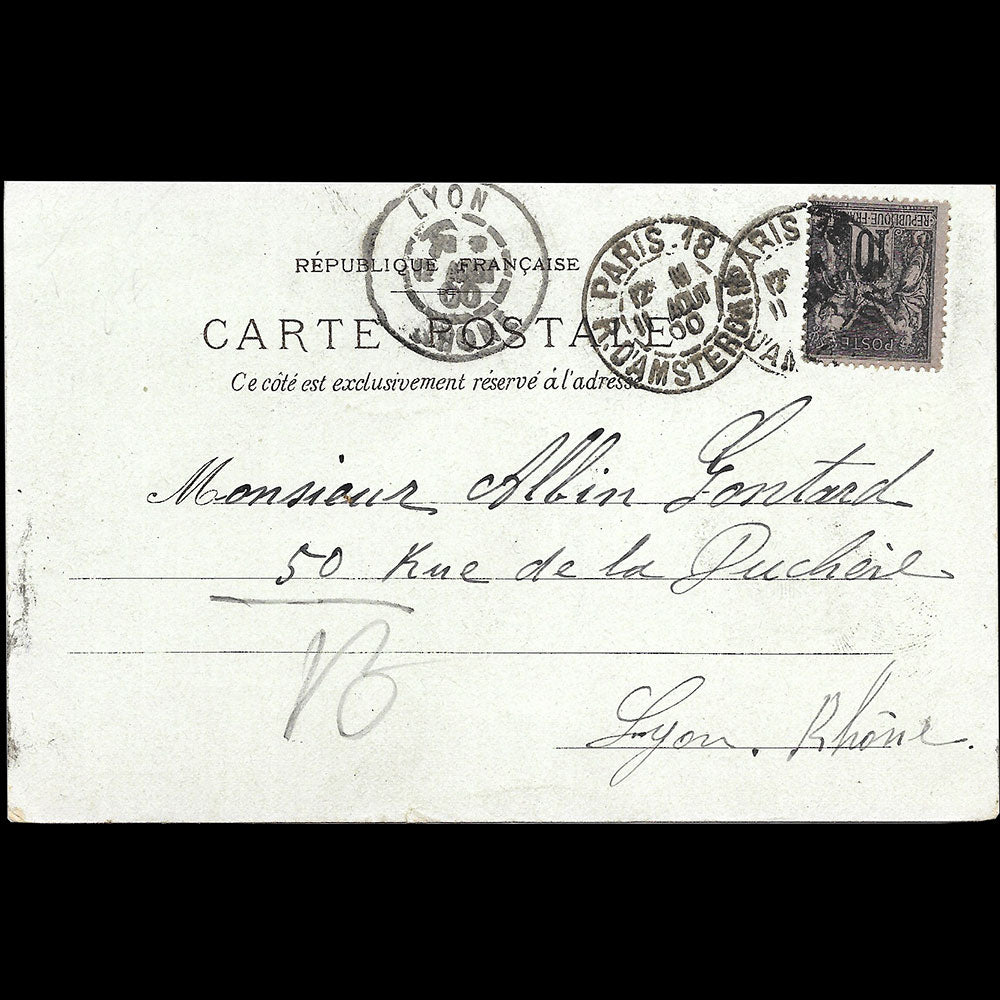 LYON
RHONE
RÉPUBLIQUE FRANÇAISE
CARTE POSTALE
Ce côté est exclusivement réservé à l'adresse
PARIS 18
11
AOUT
00
R. D'AMSTERDAM
PARIS
11
D'AM
RÉPUBLIQUE FRAN
10
POSTES
Monsieur Albin Gontard
50 Rue de la Duchère
Lyon. Rhône.